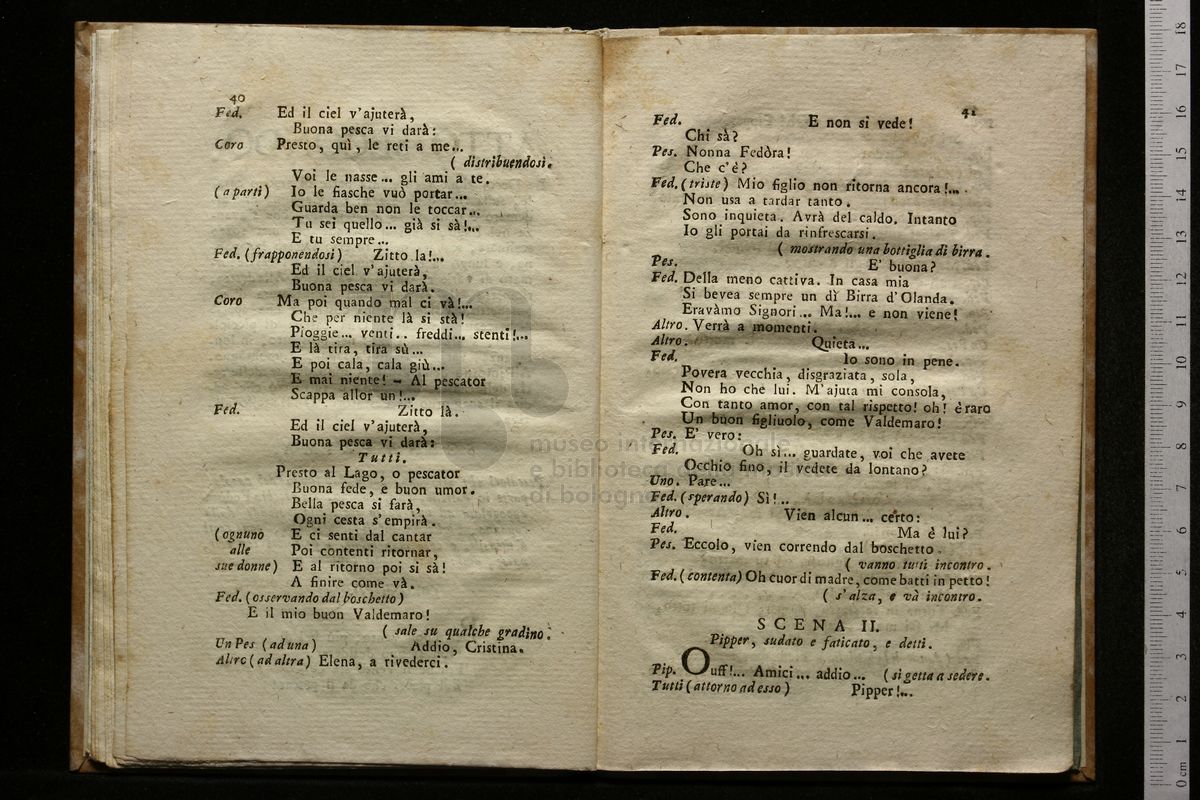 40
Fed. Ed il ciel v'ajuterà,
Buona pesca vi darà:
Coro Presto, quì, le reti a me...
( distribuendosi.
Voi le nasse... gli ami a te.
(a parti) Io le fiasche vuò portar...
Guarda ben non le toccar...
Tu sei quello... già si sà!...
E tu sempre...
Fed. (frapponendosi) Zitto la!...
Ed il ciel v'ajuterà,
Buona pesca vi darà.
Coro Ma poi quando mal ci và!...
Che per niente là si stà!
Pioggie... venti.. freddi... stenti!...
E là tira, tira sù...
E poi cala, cala giù...
E mai niente! - Al pescator
Scappa allor un!...
Fed. Zitto là.
Ed il ciel v'ajuterà,
Buona pesca vi darà:
Tutti.
Presto al Lago, o pescator
Buona fede, e buon umor.
Bella pesca si farà,
Ogni cesta s'empirà.
(ognuno E ci senti dal cantar
alle Poi contenti ritornar,
sue donne) E al ritorno poi si sà!
A finire come và.
Fed. (osservando dal boschetto)
E il mio buon Valdemaro!
( sale su qualche gradino.
Un Pes (ad una) Addio, Cristina.
Altro (ad altra) Elena, a rivederci.
41
Fed. E non si vede!
Chi sà?
Pes. Nonna Fedòra!
Che c'è?
Fed. (triste) Mio figlio non ritorna ancora!...
Non usa a tardar tanto.
Sono inquieta. Avrà del caldo. Intanto
Io gli portai da rinfrescarsi.
( mostrando una bottiglia di birra.
Pes. E' buona?
Fed. Della meno cattiva. In casa mia
Si bevea sempre un dì Birra d'Olanda.
Eravàmo Signori... Ma!... e non viene!
Altro. Verrà a momenti.
Altro. Quieta...
Fed. Io sono in pene.
Povera vecchia, disgraziata, sola,
Non ho che lui. M'ajuta mi consola,
Con tanto amor, con tal rispetto! oh! è raro
Un buon figliuolo, come Valdemaro!
Pes. E' vero:
Fed. Oh sì... guardate, voi che avete
Occhio fino, il vedete da lontano?
Uno. Pare...
Fed. (sperando) Sì!...
Altro. Vien alcun... certo:
Fed. Ma è lui?
Pes. Eccolo, vien correndo dal boschetto.
( vanno tutti incontro.
Fed. (contenta) Oh cuor di madre, come batti in petto!
( s'alza, e và incontro.
SCENA II.
Pipper, sudato e faticato, e detti.
Pip. Ouff!... Amici... addio... (si getta a sedere.
Tutti (attorno ad esso) Pipper!...
museo internazionale
e biblioteca della
di bologna
0 cm 1 2 3 4 5 6 7 8 9 10 11 12 13 14 15 16 17 18